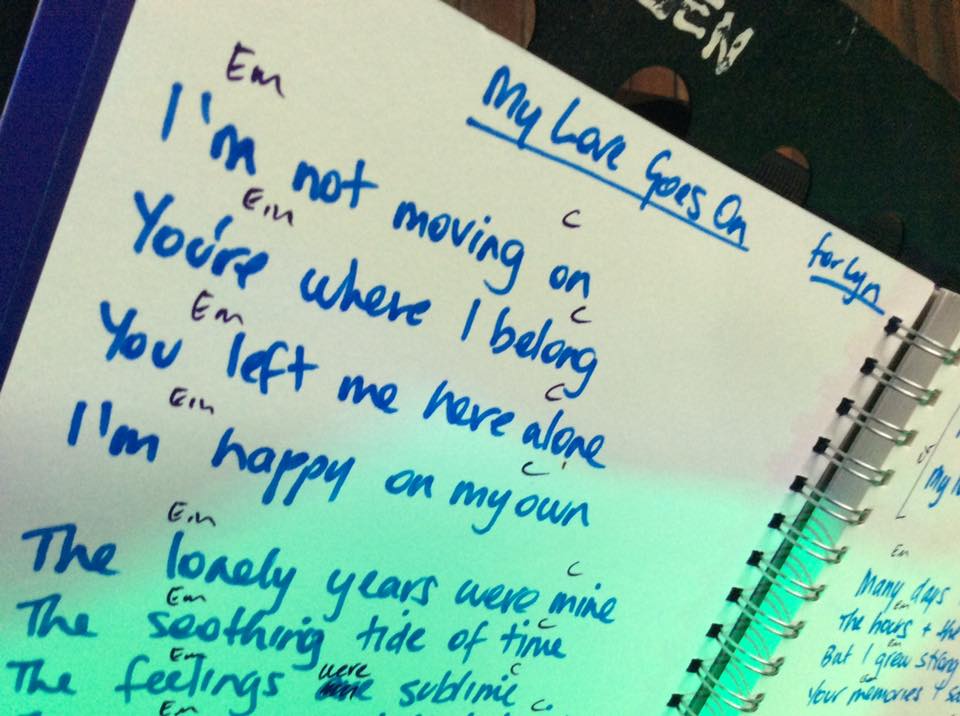 EEN
My Love Goes On
for Lyn
Em
I'm not moving on
Em C
You're where I belong
Em C
You left me here alone
Em C
I'm happy on my own
C
Em
The lonely years were mine
C
Em
The soothing tide of time
C
Em
The feelings were sublime
C
Em C
My
Em
Many days
Em
The hours + the
Em
But I grew strong
Em
Your memories +